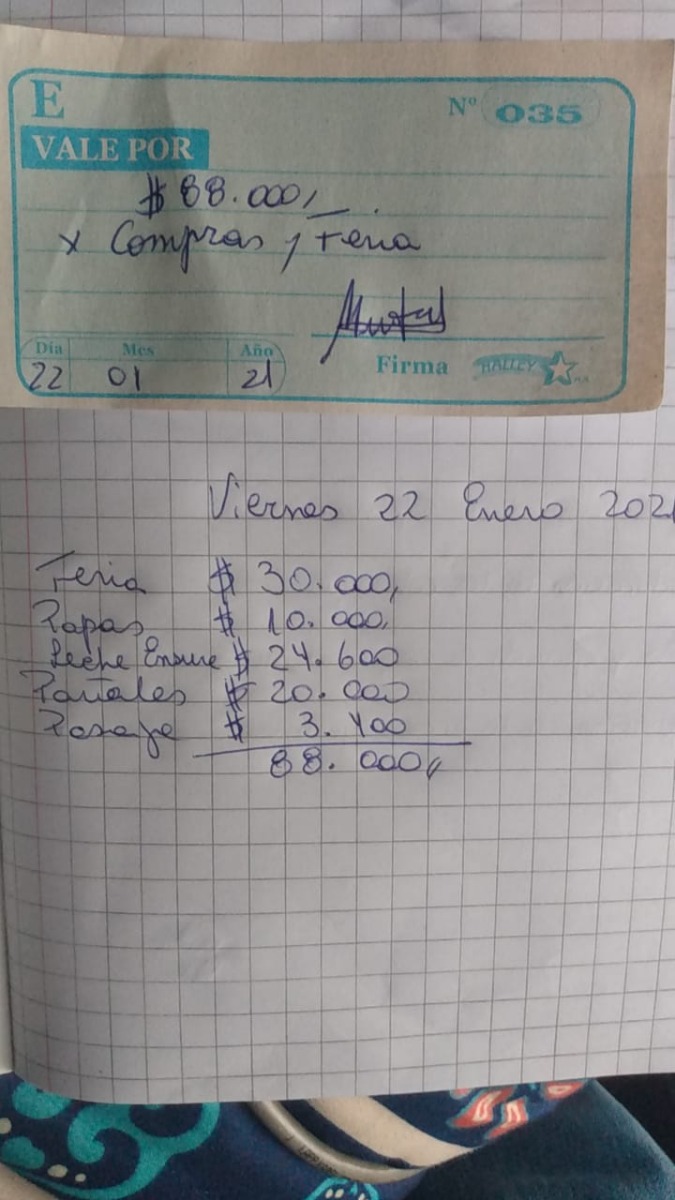 E
Nº 035
VALE POR
$ 88.000,_ .
x Compras y Feria
Día Mes Año
22 01 21
Firma HALLEY
Viernes 22 Enero 202
Feria $ 30.000,
Papas $ 10.000,
Leche Ensure $ 24.600
Pañales $ 20.000
Pasaje $ 3.400
88.000,,